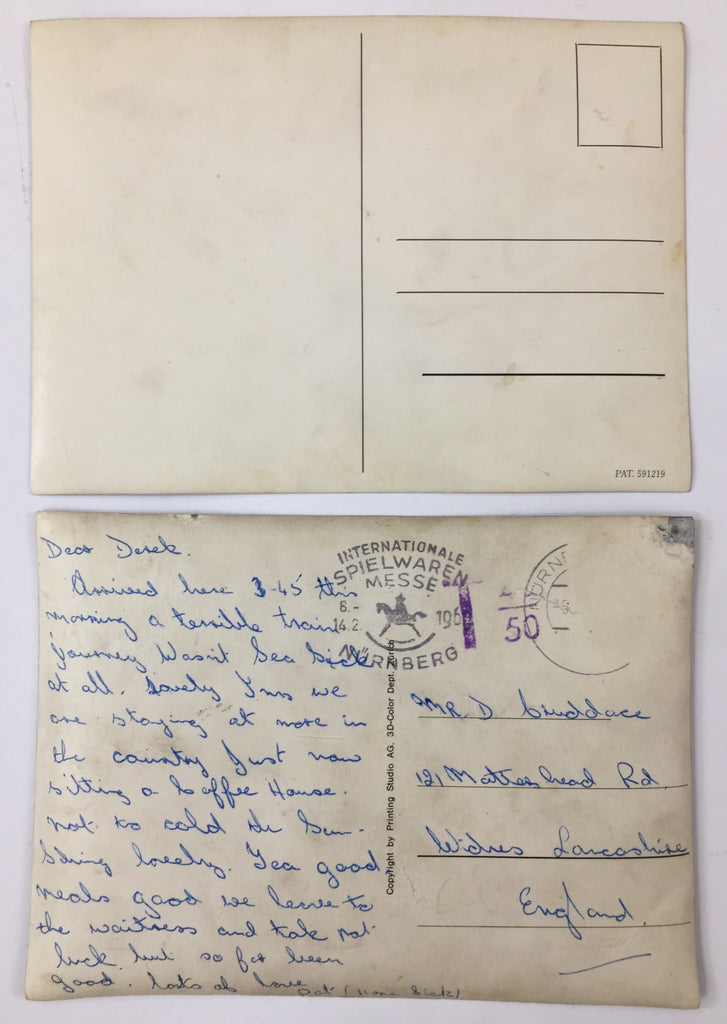 PAT. 591219
Dear Derek.
Arrived here 3-45 this
morning a terrible train
journey Wasn't Sea Sick
at all. Lovely Inns we
are staying at more in
the country Just now
sitting a Coffee House.
not to cold the Sun-
Shing lovely. Tea good
meals good we leave to
the waitress and take pot
luck but so far been
good. lots of love
Pat (Home Sick)
INTERNATIONALE
SPIELWAREN
MESSE
8.-
14.2. 196
NÜRNBERG
50
NÜRN
Copyright by Printing Studio AG. 3D-Color Dept. Zürich
MR D Cruddace
191 Rd.
Widnes Lancashire
England.